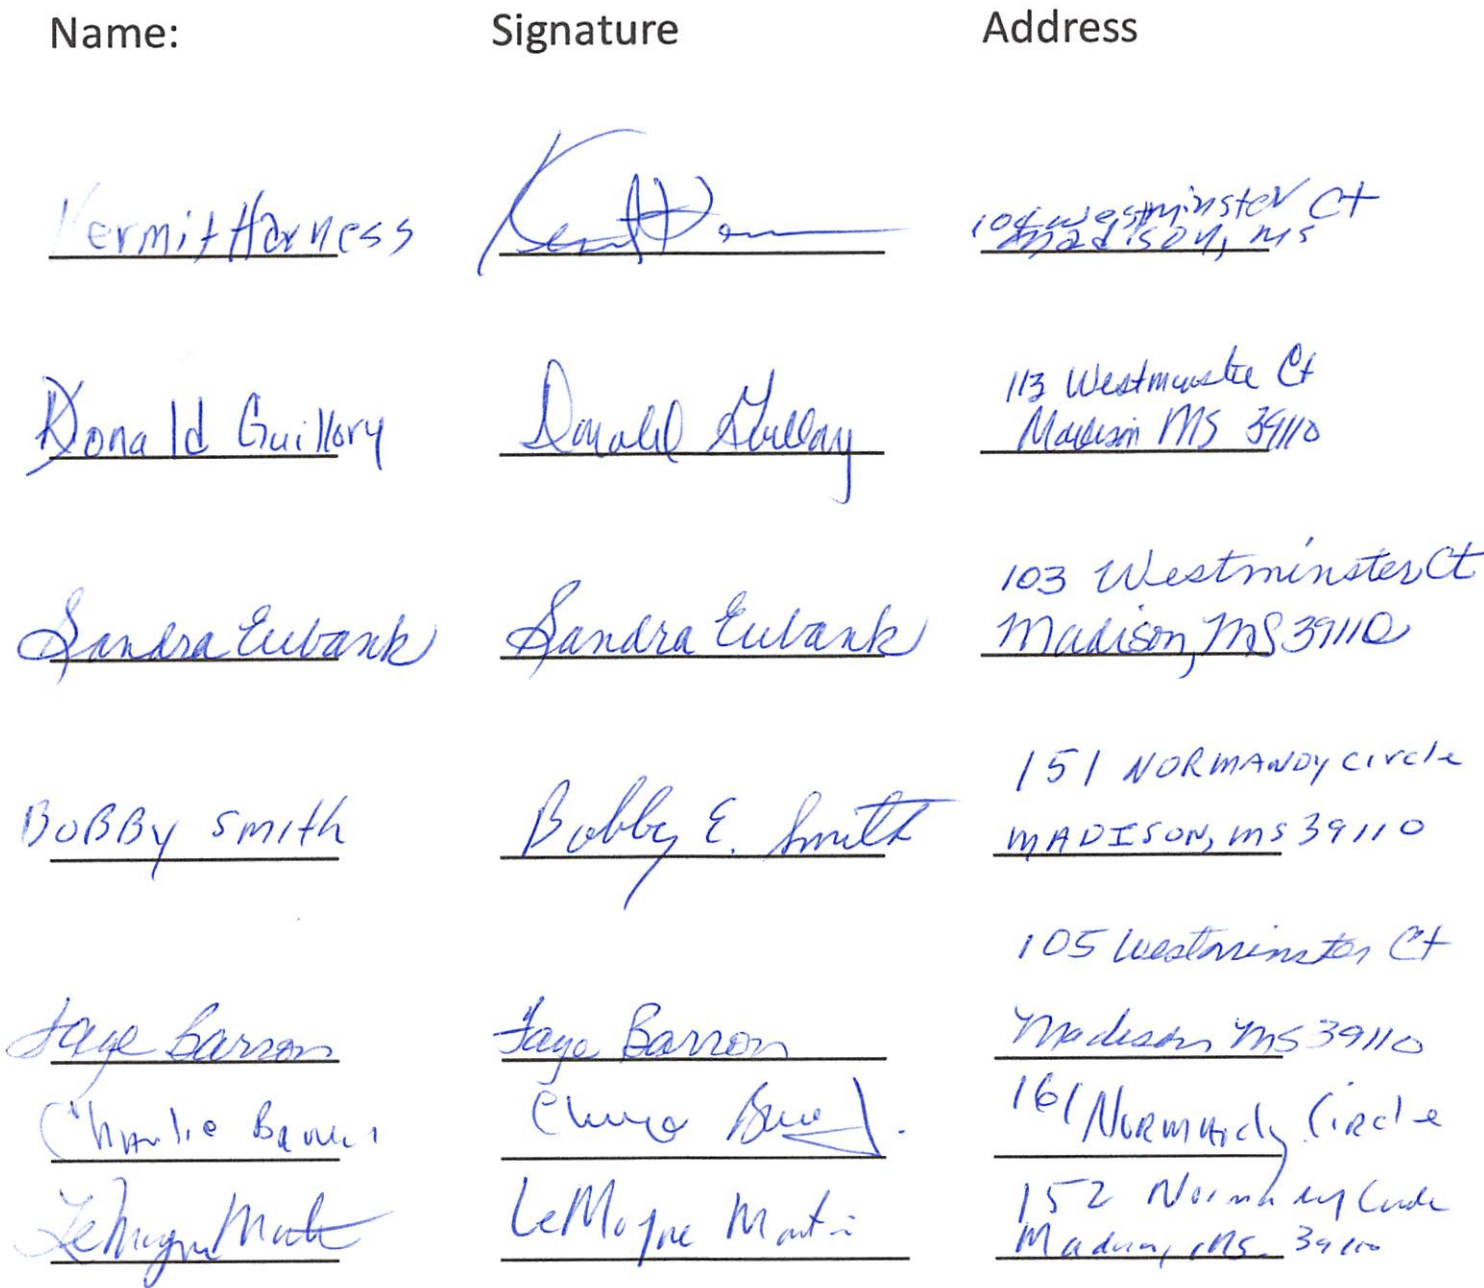 Name: Signature Address
Kermit Harness
104 Westminster Ct
Madison, MS
Donald Guillory Donald Guillory 113 Westminster Ct
Madison MS 39110
Sandra Eubank Sandra Eubank 103 Westminster Ct
Madison, MS 39110
BOBBY Smith Bobby E. Smith 151 NORMANDY circle
MADISON, MS 39110
105 Westminster Ct
Faye Barron Faye Barron Madison MS 39110
Charlie 161 Normandy Circle
LeMoyne Martin 152 Normandy Circle
Madison, MS. 39110